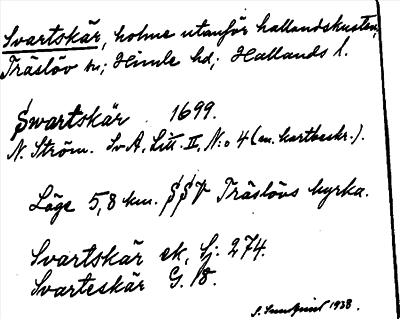 Svartskär, holme utanför hallandskusten,
Träslöv sn; Himle hd; Hallands l.
Swartskär 1699.
N. Ström. Sv A. Litt. II, N:o 4 (en. kartbeskr.).
Läge 5,8 km. SSV Träslövs kyrka.
Svartskär ek. Sj: 274.
Svarteskär G. 18.
1938.